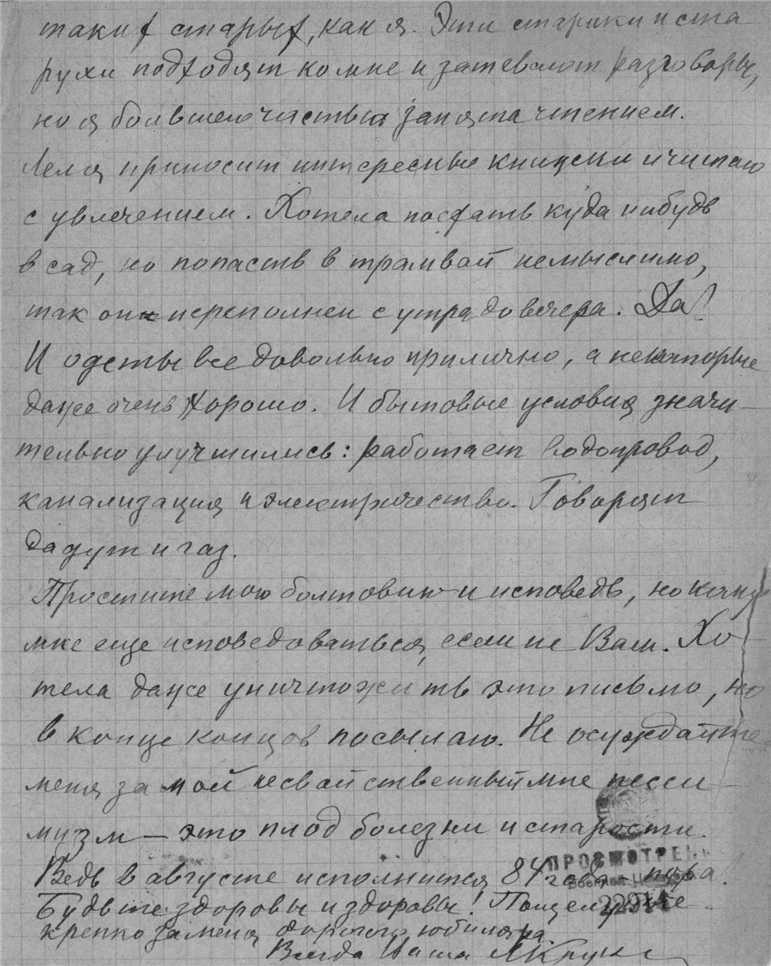 таких старых, как я. Эти старики и ста
рухи подходят ко мне и затевают разговоры,
но я большею частью занята чтением.
Леля приносит интересные книжки и читаю
с увлечением. Хотела поехать куда нибудь
в сад, но попасть в трамвай немыслимо,
так он переполнен с утра до вечера. Да!
И одеты все довольно прилично, а некоторые
даже очень хорошо. И бытовые условия значи-
тельно улучшились: работает водопровод,
канализация и электричество. Говорят
дадут и газ.
Простите мою болтовню и исповедь, но кому
мне еще исповедоваться, если не Вам. Хо-
тела даже уничтожить это письмо, но
в конце концов посылаю. Не осуждайте
меня за мой несвойственный мне песси-
мизм — это плод болезни и старости.
ПРОСМОТРЕНО
Ведь в августе исполнится 84 года
22914
Будьте здоровы и здоровы! Поцелуйте
крепко за меня дорогого юбиляра
Всегда Ваша